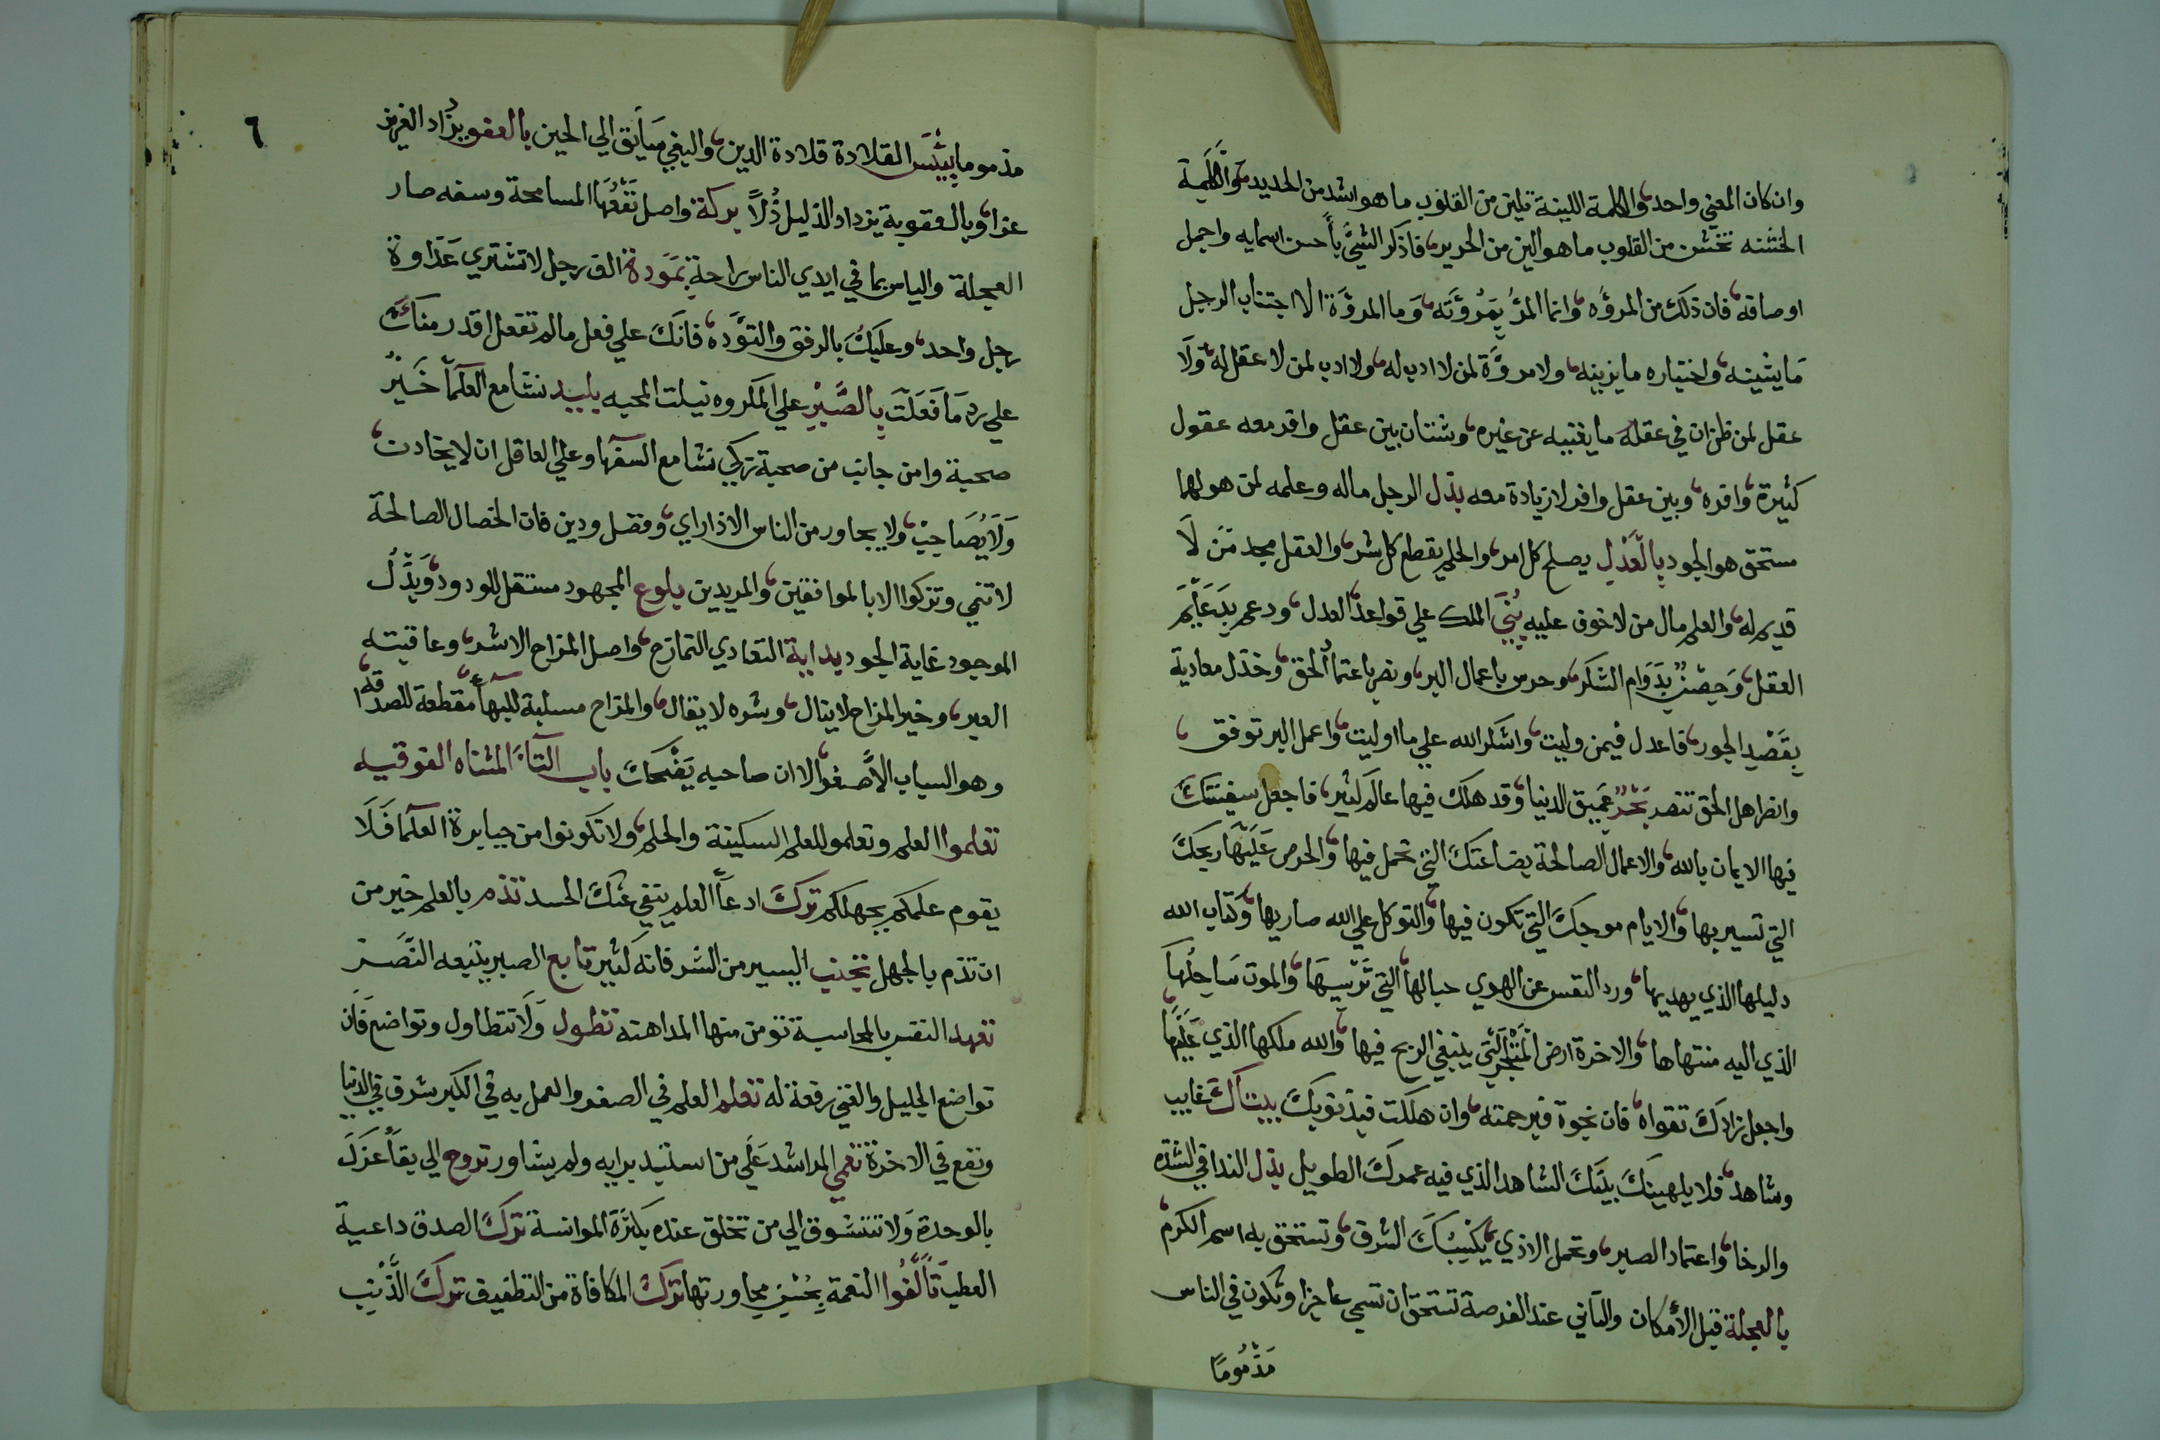 وان كان المعني واحد، والكلمة اللينة تلين من القلوب ما هو اشد من الحديد، والكلمة
الخشنه تخشن من القلوب ما هو الين من الحرير، فاذكر الشيَّ بأحسن اسمايه واجمل
اوصافه، فان ذلك من المروَّه، وانما المرُ بِمَرُوَّته، وَما المروَّة الا اجتناب الرجل
مَا يشينه، واختياره ما يزينه، ولا مروَّة لمن لا ادب له، ولا ادب لمن لا عقل له، وَلَا
عقل لمن ظن ان في عقله ما يغنيه عن غيره، وشتان بين عقل وافر معه عقول
كثيرة، وافره، وبين عقل وافر لا زيادة معه بذل الرجل ماله وعلمه لمن هو لهما
مستحق هو الجود بِالْعَدْلِ يصلح كل امر، والحلم يقطع كل شر، والعقل مجد مَن لَا
قديم له، والعلم مال من لا خوف عليه بُنِيَ الملك علي قواعد العدل، ودعم بِدَعَايم
العقل، وَحصن بِدَوَام الشكر، وحرس باعمال البر، ونصر باعتماد الحق، وخذل معاديه
بِقَصْدِ الجور، فاعدل فيمن وليت، واشكر الله علي ما اوليت، واعمل البر توفق،
وانظر اهل الحق تنصر بَحْرٌ عَمِيق الدنيا، وقد هلك فيها عالم كثير، فاجعل سفينتك
فيها الايمان بالله، والاعمال الصالحة بضاعتكَ التي تحمل فيها، والحرص عَلَيْهَا ريحكَ
التي تسير بها، والايام موجكَ التي تكون فيها، والتوكل علي الله صاريها، وكتاب الله
دليلها الذي يهديها، ورد النفس عن الهوي حبالها، التي تَرْسِيهَا، والموت سَاحِلُهَا
الذي اليه منتهاها، والاخرة ارض الْمَتْجَرِ التي ينبغي الربح فيها، والله ملكها الذي عَلَيْهَا،
واجعل زادكَ تقواه، فان نجوة فبرحمته، وان هلكت فبذنوبكَ بيتاكَ غايب
وشاهد، فلا يلهينكَ بيتكَ الشاهد الذي فيه عمركَ الطويل بذل الندا في الشدّه
والرخا، واعتماد الصبر، وتحمل الاذي، يُكْسِبُكَ الشرف، وتستحق به اسم الكرم،
بالعجلة قبل الأمكان والتاني عند الفرصة تستحق ان تسمي عاجزا، وتكون في الناس
مَذْمُومًا
٦
مذموما بِيئسَ القلادة قلادة الدين، والبغي سَايق الي الحين بالعفو يزْداد العزيز
عزا، وبالعقوبة يزداد الذليل ذُلاً بركة واصل نَفْعُهَا المسامحة وسفه صار
العجلة والياس بما في ايدي الناس راحة بمَودة الف رجل لا تشتري عَدَاوة
رجل واحد، وعليكَ بالرفق والتوَّده، فانكَ علي فعل ما لم تفعل اقدر منكَ
علي رد مَا فَعَلتَ بِالصَّبْرِ علي المكروه نيلت المحبه بليد نشا مع العلمآ خَيْرٌ
صحبة وامن جانب من صحبة زكي نشا مع السفهآ وعلي العاقل ان لا يخادن،
وَلَا يُصَاحِب، ولا يجاور من الناس الا ذا راي، وفضل ودين فان الخصال الصالحة
لا تنمي وتزكوا الا بالموافقين، والمريدين بلوع المجهود مستقل للودود، وَبَذْلُ
الموجود غاية الجود بداية التعادي التمازح، واصل المزاح الاشر، وعاقبته
العير، وخير المزاح لا ينال، وشره لا يقال، والمزاح مسلبة للبهآ، مقطعة للصداقه،
وهو السباب الأَصغر، الا ان صاحبه يَضْحَك باب التَآء المثناه الفوقيه
تعلموا العلم وتعلموا للعلم السكينة والحلم، ولا تكونوا من جبابرة العلمآ فَلَا
يقوم علمكم بجهلكم تركَ ادعآ العلم ينفي عنكَ الحسد تذم بالعلم خير من
ان تذم بالجهل تجنب اليسير من الشر فانه كثير تابع الصبر يتبعه النَّصَر
تعهد النفس بالمحاسبة تؤمن منها المداهنه تطول وَلَا تتطاول وتواضع فَان
تواضع الجليل والغني رفعة له تعلم العلم في الصغر والعمل به في الكبر شرف في الدنيا
ونفع في الاخرة تعمي المراشد عَلَي من استبد برايه ولم يشاور تروح الي بقآ عزكَ
بالوحدة وَلا تتشوق الي من تخلق عنده بكثرة الموانسة تركَ الصدق داعية
العطيَ تَأَلَّفُوا النعمة بِحُسْنِ مجاورتها تركَ المكافاة من التطفيف تركَ الذَّنْبِ